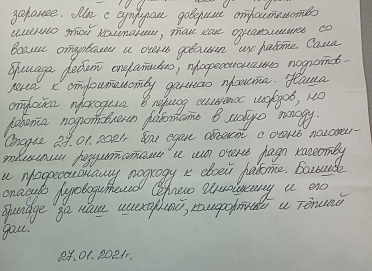 заранее. Мы с супругом доверили строительство
именно этой компании, так как ознакомились со
всеми отзывами и очень довольны их работе. Сама
бригада ребят оперативно, профессионально подготов-
лена к строительству данного проекта. Наша
стройка проходила в период сильных морозов, но
ребята подготовлены работать в любую погоду.
Сегодня 27.01.2021г был сдан объект с очень положи-
тельными результатами и мы очень рады качеству
и профессионалу подходу к своей работе. Большое
спасибо руководителю Сергею Инюшкину и его
бригаде за наш шикарный, комфортный и тёплый
дом.
27.01.2021г.